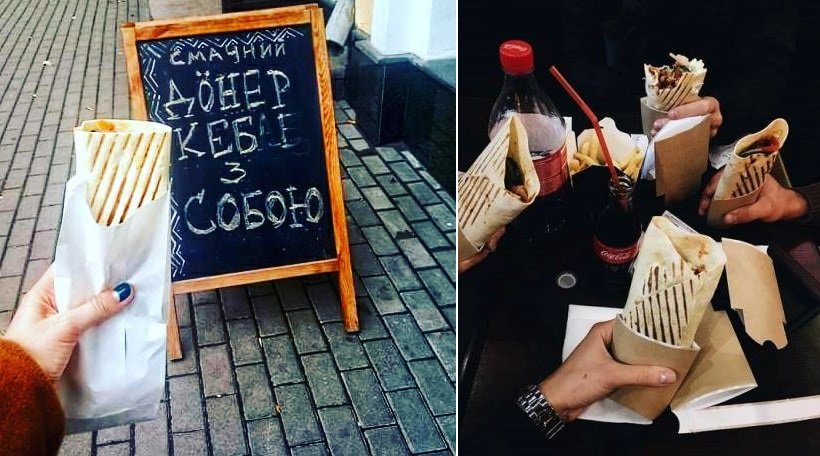 СМАЧНИЙ
ДӦНЕР
КЕБАБ
З
СОБОЮ
Coca-Cola